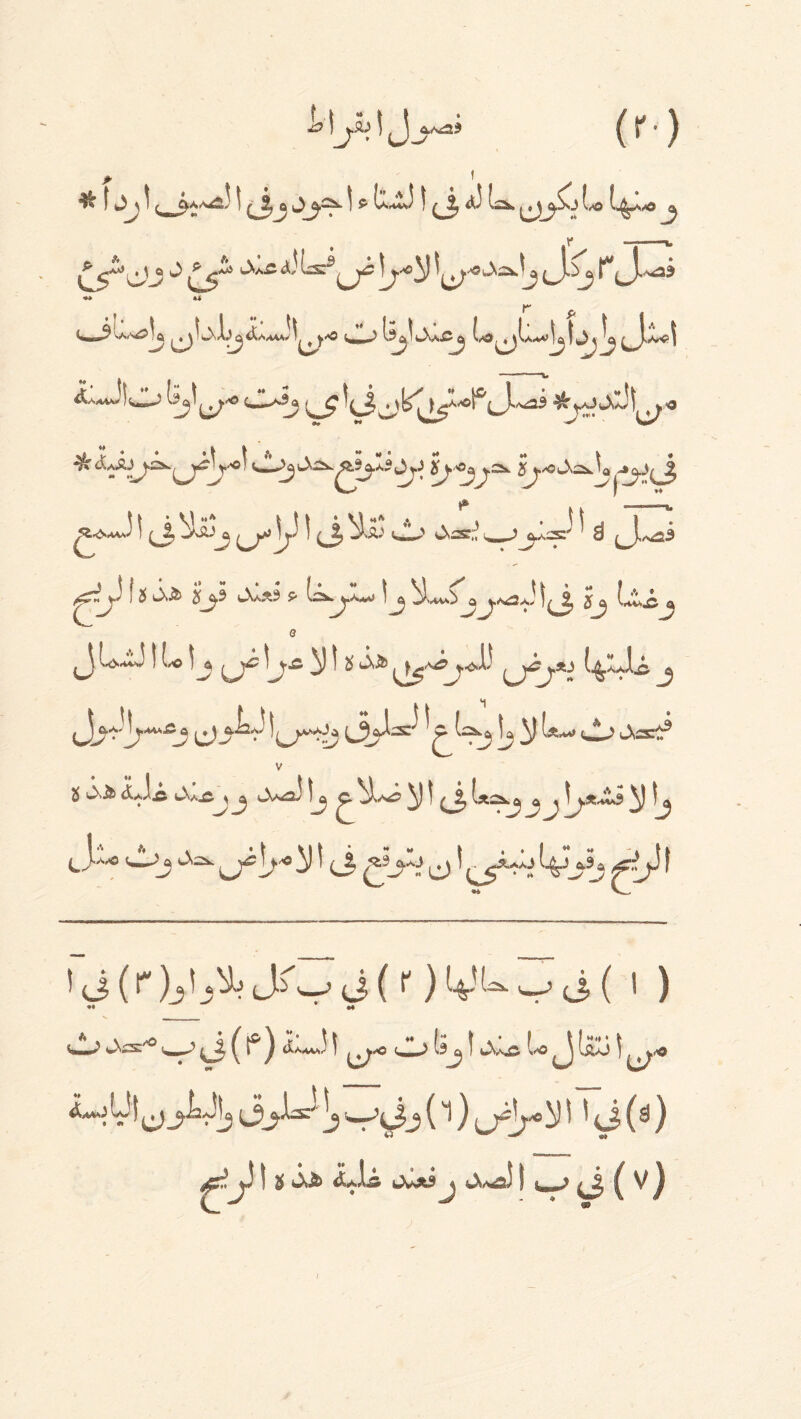 (٣٠) فصول بقراط
ومنها ما يكون حالها في الشتاء اجود وفي الصيف اردأ *
فصل ٣ وكل واحد من الامراض فحاله عند شيء دون شيء
امثل واردأ واسنان ما عند اوقات من السنة وبلدان واصناف
من التدبير * فصل ٤ متى كان في اوقات السنة
في يوم واحد مرة حر ومرة برد فتوقع حدوث امراض خريفية *
فصل ٥ الجنوب تحدث ثقلا في الراس وثقلا في السمع
وغشاوة في البصر وكسلا واسترخاء فعند قوة هذه الريح
وغلبتها يعرض للمرضى هذه الاعراض واما الشمال
فتحدث سعالا ووجع الحلوق ويبس البطون وعسر البول
والاقشعرار ووجعا في الاضلاع والصدر وعند غلبة هذه
الريح وقوتها ينبغي ان يتوقع في الامراض حدوث مثل
(١) في ب حالها (٢) في ب كل بلا واو (٣) في ا
من انتقال ما عند اوقات من السنة (٤) في ب محدث
(٥) في ا الامراض (٦) وفي ب والحلوق والبطون اليابسة
(٧) في ب الصدر فعند غلبة هذه الريح